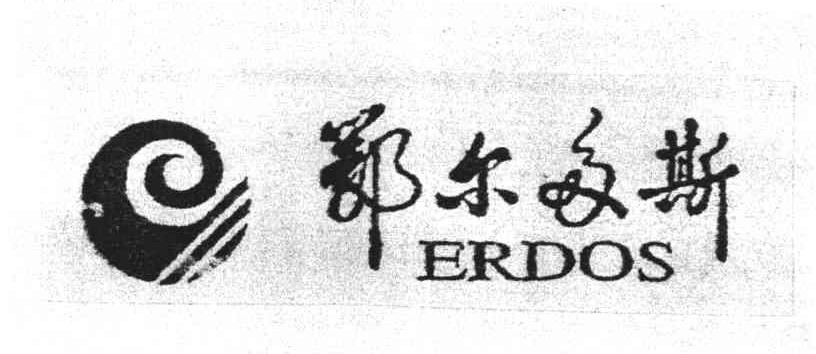 鄂尔多斯
ERDOS